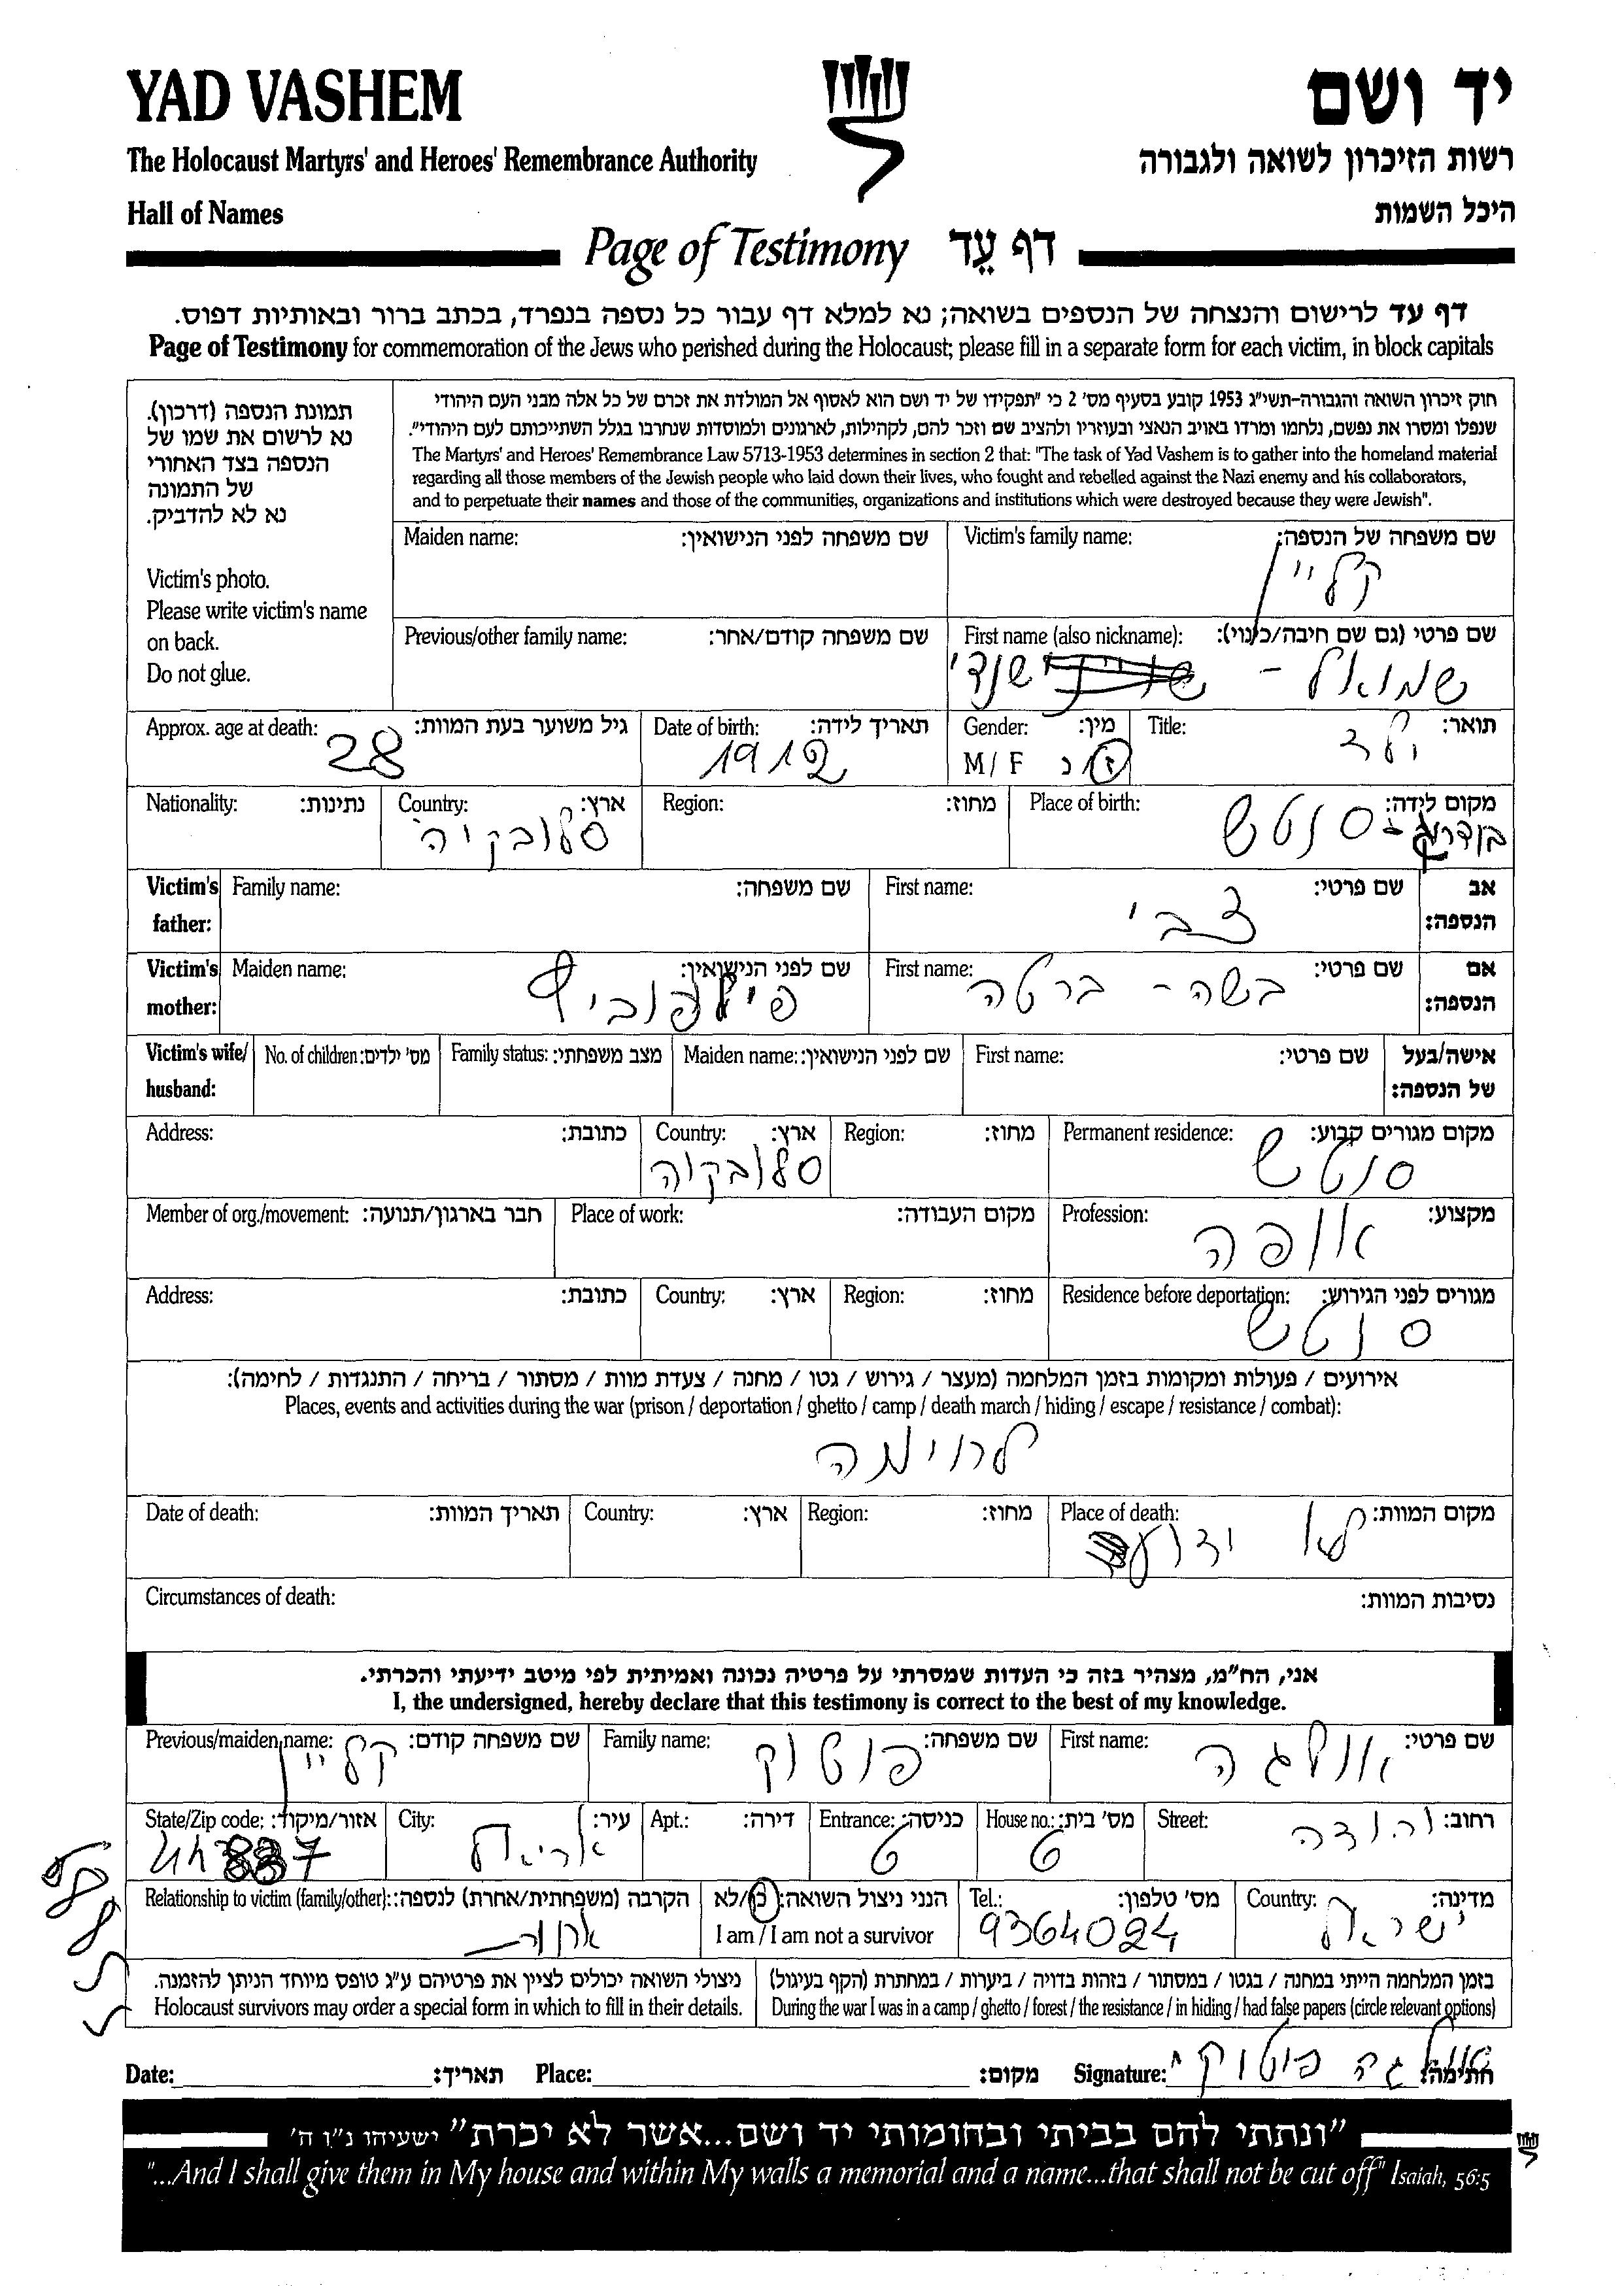 YAD VASHEM
יד ושם
The Holocaust Martyrs' and Heroes' Remembrance Authority
רשות הזיכרון לשואה ולגבורה
Hall of Names
היכל השמות
Page of Testimony דף עֵד
דף עד לרישום והנצחה של הנספים בשואה; נא למלא דף עבור כל נספה בנפרד, בכתב ברור ובאותיות דפוס.
Page of Testimony for commemoration of the Jews who perished during the Holocaust; please fill in a separate form for each victim, in block capitals
חוק זיכרון השואה והגבורה-תשי"ג 1953 קובע בסעיף מס' 2 כי "תפקידו של יד ושם הוא לאסוף אל המולדת את זכרם של כל אלה מבני העם היהודי
שנפלו ומסרו את נפשם, נלחמו ומרדו באויב הנאצי ובעוזריו ולהציב שם וזכר להם, לקהילות, לארגונים ולמוסדות שנחרבו בגלל השתייכותם לעם היהודי".
The Martyrs' and Heroes' Remembrance Law 5713-1953 determines in section 2 that: "The task of Yad Vashem is to gather into the homeland material
regarding all those members of the Jewish people who laid down their lives, who fought and rebelled against the Nazi enemy and his collaborators,
and to perpetuate their names and those of the communities, organizations and institutions which were destroyed because they were Jewish".
תמונת הנספה (דרכון).
נא לרשום את שמו של
הנספה בצד האחורי
של התמונה
נא לא להדביק.
Victim's photo.
Please write victim's name
on back.
Do not glue.
Victim's family name: שם משפחה של הנספה:
קליין
Maiden name: שם משפחה לפני הנישואין:
First name (also nickname): שם פרטי (גם שם חיבה/כינוי):
שמואל - שנדי
Previous/other family name: שם משפחה קודם/אחר:
Title: תואר:
ילד
Gender: מין:
M / F ז / נ
Date of birth: תאריך לידה:
1912
Approx. age at death: גיל משוער בעת המוות:
28
Place of birth: מקום לידה:
סנטש
Region: מחוז:
Country: ארץ:
סלובקיה
Nationality: נתינות:
Victim's father: אב הנספה:
First name: שם פרטי:
צבי
Family name: שם משפחה:
Victim's mother: אם הנספה:
First name: שם פרטי:
בשה - ברטה
Maiden name: שם לפני הנישואין:
פילפוביץ
Victim's wife/ husband: אישה/בעל של הנספה:
First name: שם פרטי:
Maiden name: שם לפני הנישואין:
Family status: מצב משפחתי:
No. of children: מס' ילדים:
Permanent residence: מקום מגורים קבוע:
סנטש
Region: מחוז:
Country: ארץ:
סלובקיה
Address: כתובת:
Profession: מקצוע:
אופה
Place of work: מקום העבודה:
Member of org./movement: חבר בארגון/תנועה:
Residence before deportation: מגורים לפני הגירוש:
סנטש
Region: מחוז:
Country: ארץ:
Address: כתובת:
אירועים / פעולות ומקומות בזמן המלחמה (מעצר / גירוש / גטו / מחנה / צעדת מוות / מסתור / בריחה / התנגדות / לחימה):
Places, events and activities during the war (prison / deportation / ghetto / camp / death march / hiding / escape / resistance / combat):
לחימה
Place of death: מקום המוות:
לא ידוע
Region: מחוז:
Country: ארץ:
Date of death: תאריך המוות:
Circumstances of death: נסיבות המוות:
אני, הח"מ, מצהיר בזה כי העדות שמסרתי על פרטיה נכונה ואמיתית לפי מיטב ידיעתי והכרתי.
I, the undersigned, hereby declare that this testimony is correct to the best of my knowledge.
First name: שם פרטי:
אולגה
Family name: שם משפחה:
פוטוק
Previous/maiden name: שם משפחה קודם:
קליין
Street: רחוב:
יהודה
House no.: מס' בית:
6
Entrance: כניסה:
6
Apt.: דירה:
City: עיר:
אריאל
State/Zip code: אזור/מיקוד:
Country: מדינה:
ישראל
Tel.: מס' טלפון:
9364024
הנני ניצול השואה: כן/לא
I am / I am not a survivor
Relationship to victim (family/other): הקרבה (משפחתית/אחרת) לנספה:
אחות
בזמן המלחמה הייתי במחנה / בגטו / במסתור / בזהות בדויה / ביערות / במחתרת (הקף בעיגול)
During the war I was in a camp / ghetto / forest / the resistance / in hiding / had false papers (circle relevant options)
ניצולי השואה יכולים לציין את פרטיהם ע"ג טופס מיוחד הניתן להזמנה.
Holocaust survivors may order a special form in which to fill in their details.
Date: תאריך: Place: מקום: Signature: אולגה פוטוק חתימה:
"ונתתי להם בביתי ובחומותי יד ושם...אשר לא יכרת" ישעיהו נ"ו ה'
"...And I shall give them in My house and within My walls a memorial and a name...that shall not be cut off" Isaiah, 56:5